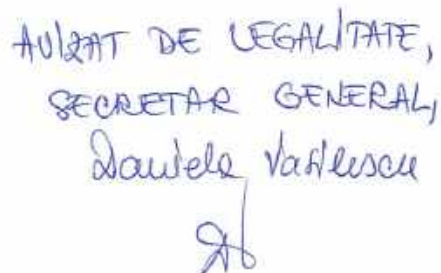 AVIZAT DE LEGALITATE,
SECRETAR GENERAL,
Daniela Vasilescu